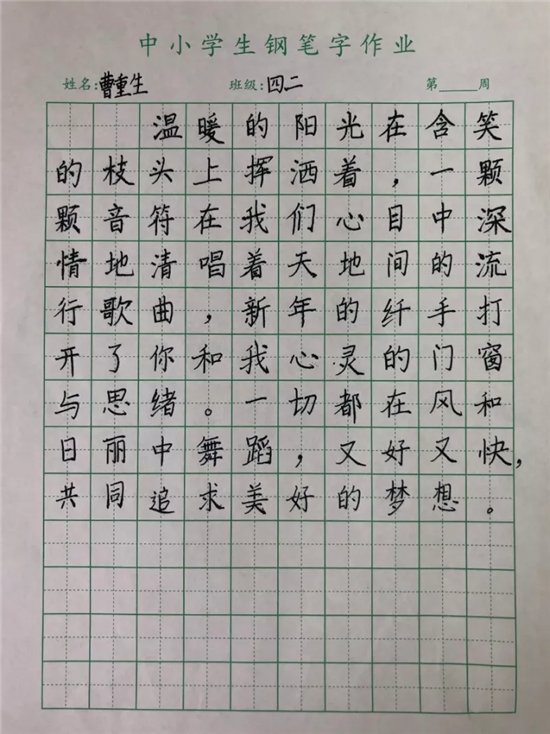 中小学生钢笔字作业
姓名:曹重生 班级:四二 第____周
温暖的阳光在含笑
的枝头上挥洒着，一颗
颗音符在我们心目中深
情地清唱着天地间的流
行歌曲，新年的纤手打
开了你和我心灵的门窗
与思绪。一切都在风和
日丽中舞蹈，又好又快，
共同追求美好的梦想。